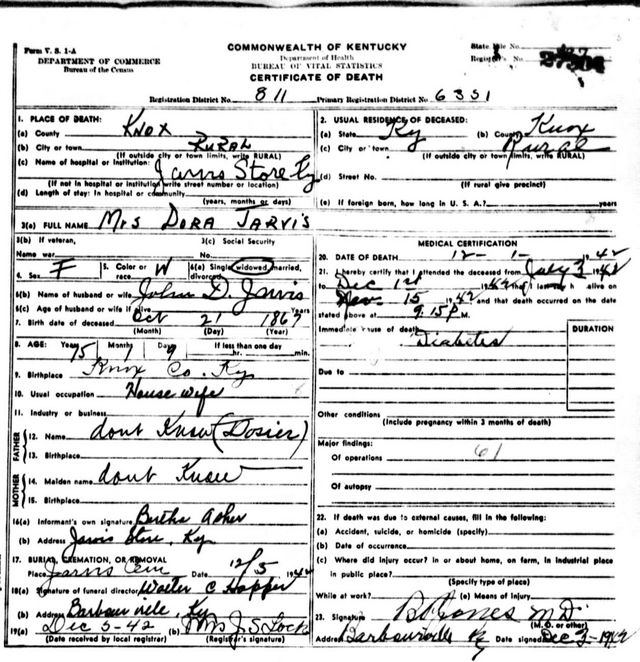 Form V. S. 1-A
DEPARTMENT OF COMMERCE
Bureau of the Census
COMMONWEALTH OF KENTUCKY
Department of Health
BUREAU OF VITAL STATISTICS
CERTIFICATE OF DEATH
State File No.
Registrar's No.
Registration District No. 811 Primary Registration District No. 6351
1. PLACE OF DEATH:
(a) County Knox
(b) City or town RURAL
(If outside city or town limits, write RURAL)
(c) Name of hospital or institution: Jarvis Store Ky
(If not in hospital or institution write street number or location)
(d) Length of stay: In hospital or community
(years, months or days)
2. USUAL RESIDENCE OF DECEASED:
(a) State Ky (b) County Knox
(c) City or town Rural
(If outside city or town limits, write RURAL)
(d) Street No.
(If rural give precinct)
(e) If foreign born, how long in U. S. A.? years
3(a) FULL NAME Mrs DORA JARVIS
3(b) If veteran, 3(c) Social Security
Name war No.
4. Sex F 5. Color or race W 6(a) Single, widowed, married, divorced
6(b) Name of husband or wife John D. Jarvis
6(c) Age of husband or wife if alive years
7. Birth date of deceased Oct 21 1867
(Month) (Day) (Year)
8. AGE: Years 75 Months 1 Days 9 If less than one day
hr. min.
9. Birthplace Knox Co. Ky
10. Usual occupation House wife
11. Industry or business
FATHER
12. Name dont Know (Dosier)
13. Birthplace
MOTHER
14. Maiden name dont Know
15. Birthplace
16(a) Informant's own signature Bertha Asher
(b) Address Jarvis Store, Ky
17. BURIAL, CREMATION, OR REMOVAL
Place Jarvis Cem Date 12/5 1942
18(a) Signature of funeral director Walter C Hopper
(b) Address Barbourville, Ky
19(a) Dec 5-42 (b) Mrs J. S. Lock
(Date received by local registrar) (Registrar's signature)
MEDICAL CERTIFICATION
20. DATE OF DEATH 12-1- 1942
21. I hereby certify that I attended the deceased from July 3 1942
to Dec 1st 1942 that I last saw h alive on
Nov. 15 1942 and that death occurred on the date
stated above at 9:15 P.M.
Immediate cause of death DURATION
Diabetes
Due to
Other conditions
(Include pregnancy within 3 months of death)
Major findings: 61
Of operations
Of autopsy
22. If death was due to external causes, fill in the following:
(a) Accident, suicide, or homicide (specify)
(b) Date of occurrence
(c) Where did injury occur? In or about home, on farm, in industrial place
in public place?
(Specify type of place)
While at work? (e) Means of Injury
23. Signature Jones M.D.
(M. D. or other)
Address Barbourville Ky Date signed Dec 3-1942